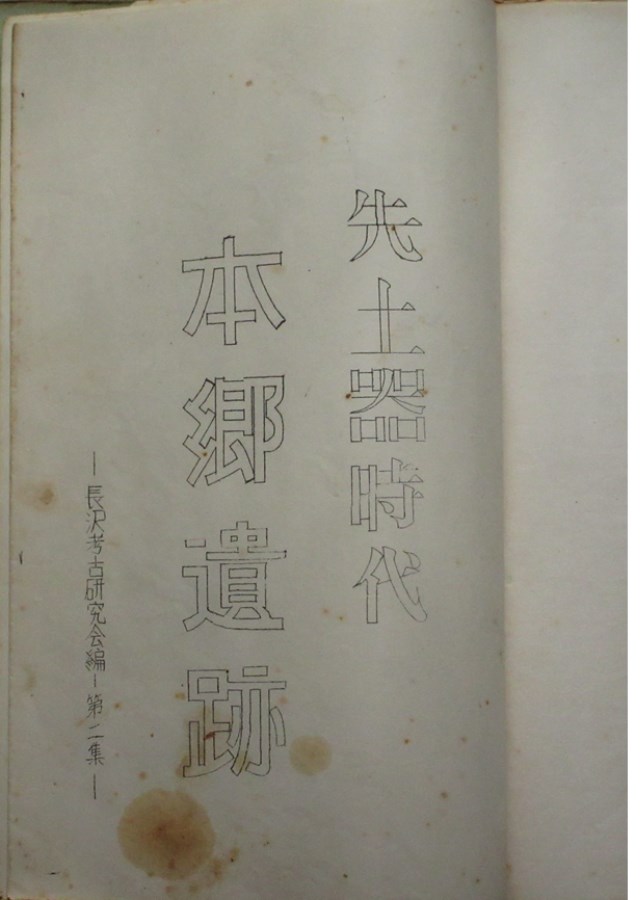 先土器時代
本郷遺跡
―長沢考古研究会編―第二集―